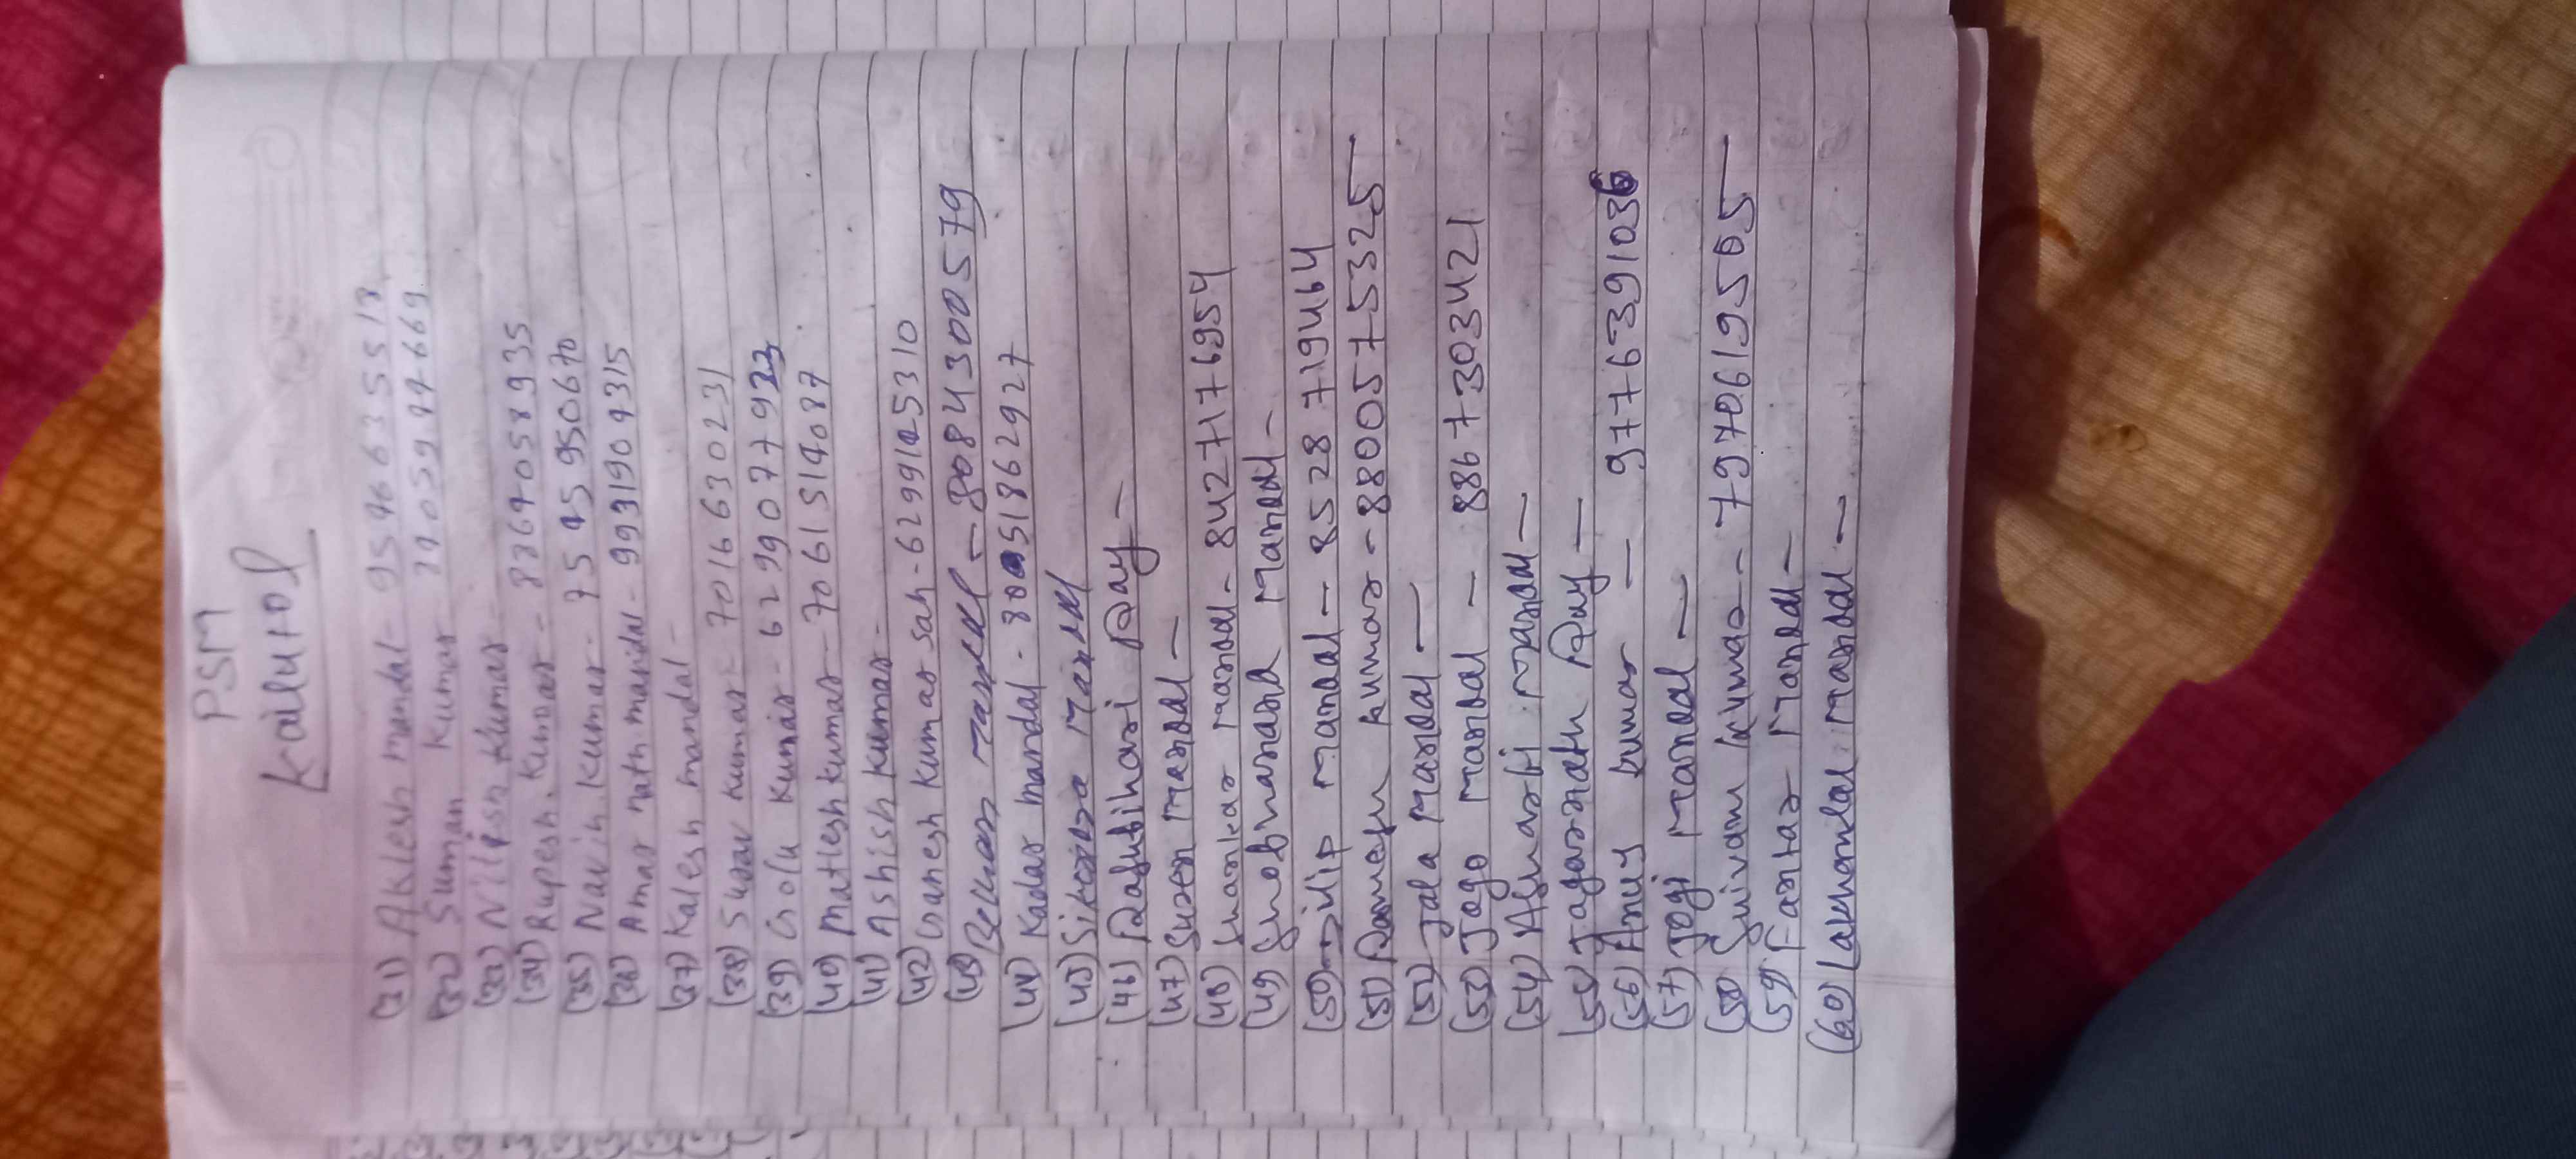 PSM
Kailurol
(31) Aklesh mandal - 9546635518
(32) Suman Kumar
(33) Nilesh Kumar -
(34) Rupesh Kumar - 8869058935
(35) Navin Kumar - 7545950670
(36) Amar nath mandal - 9931909315
(37) Kalesh mandal -
(38) Kumar - 7016630231
(39) Golu Kumar - 6299077933
(40) Matlesh Kumar - 7061514087
(41) Ashish Kumar -
(42) Ganesh Kumar Sah - 6299125310
(43) - 8084300579
(44) Kadar mandal - 5186 2927
(45) Mandal
(46) Ray -
(47) Suren Mandal -
(48) Shankar Mandal - 8427176954
(49) Mandal -
(50) Dilip Mandal - 8528719464
(51) Kumar - 8800575325
(52) Jala Mandal -
(53) Jogo Mandal - 8867303421
(54) Mandal -
(55) Jagarnath Ray -
(56) Kumar - 9776391036
(57) Jogi Mandal -
(58) Kumar - 7970619505
(59) Mandal -
(60) Mandal -